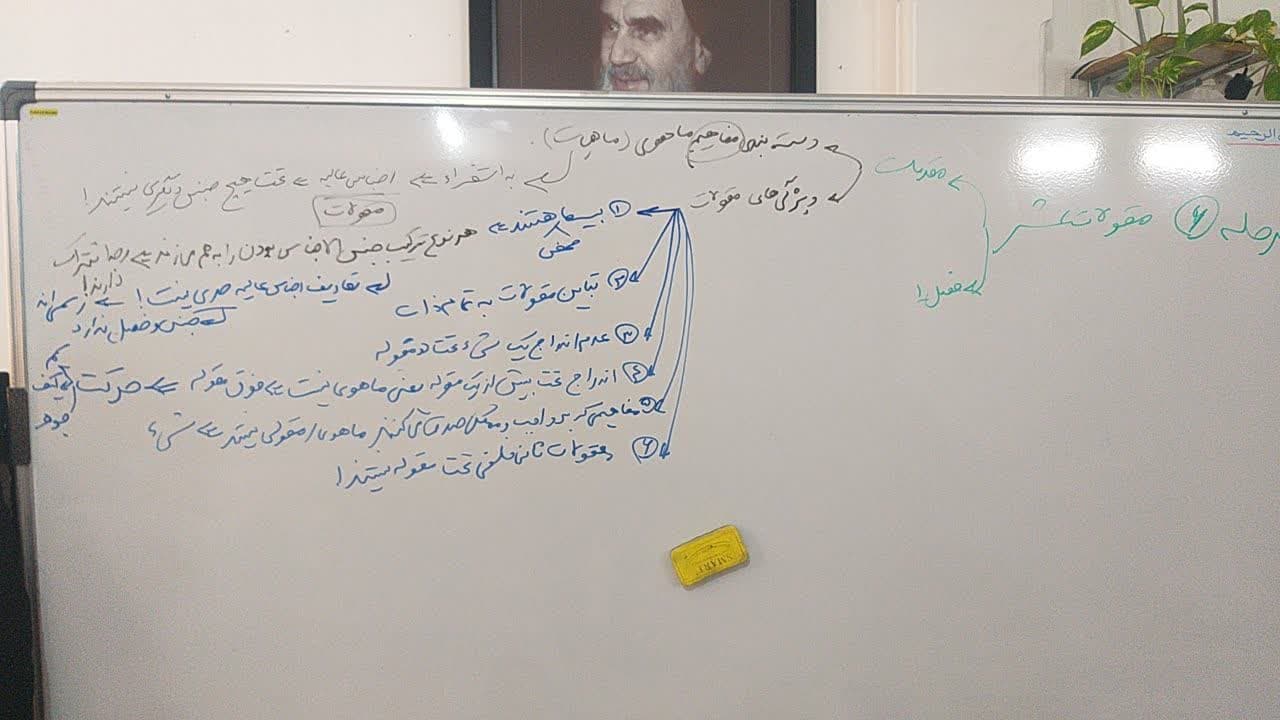 الرحیم
مرحله ۶ مقولات عشر
مقدمات
فصل ۱
دسته بندی مفاهیم ماهوی (ماهیات).
به استقراء ← اجناس عالیه ← تحت هیچ جنس دیگری نیستند!
مقولات
ویژگی های مقولات
① بسیط هستند ← هر نوع ترکیب جنس الاجناس بودن را به هم می زند
محض
دارند!
تعاریف اجناس عالیه حدی نیست! ← رسمی اند
② تباین مقولات به تمام ذات
جنس و فصل ندارد
③ عدم اندراج یک شیء تحت دو مقوله
④ اندراج تحت بیش از یک مقوله یعنی ماهوی نیست ← فوق مقوله ← حرکت
کم
کیف
جوهر
⑤ مفاهیمی که بر واجب و ممکن صدق می کنند ماهوی / مقولی نیستند ← شیء
⑥ معقولات ثانی فلسفی تحت مقوله نیستند!
SMART